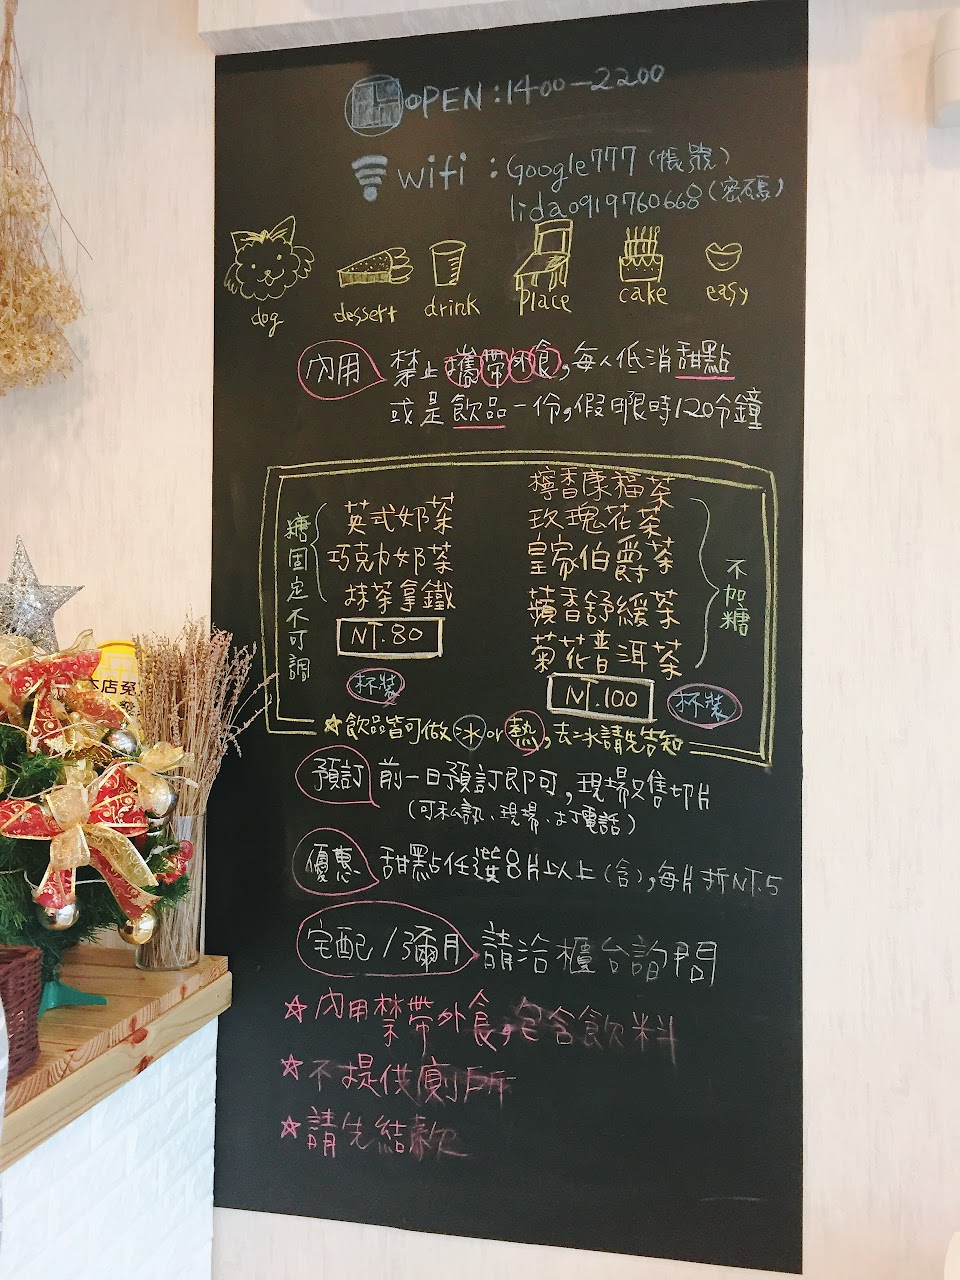 OPEN:1400-2200
wifi : Google777(帳號)
lida0919760668(密碼)
dog dessert drink place cake easy
內用 禁止攜帶外食,每人低消甜點
或是飲品一份,假日限時120分鐘
糖固定不可調
英式奶茶
巧克力奶茶
抹茶拿鐵
NT.80
杯裝
檸香康福茶
玫瑰花茶
皇家伯爵茶
蘋香舒緩茶
菊花普洱茶
NT.100
杯裝
不加糖
☆飲品皆可做冰or熱,去冰請先告知
預訂 前一日預訂即可,現場只售切片
(可私訊、現場、打電話)
優惠 甜點任選8片以上(含),每片折NT.5
宅配/彌月 請洽櫃台詢問
☆內用禁帶外食,包含飲料
☆不提供廁所
☆請先結款
本店免